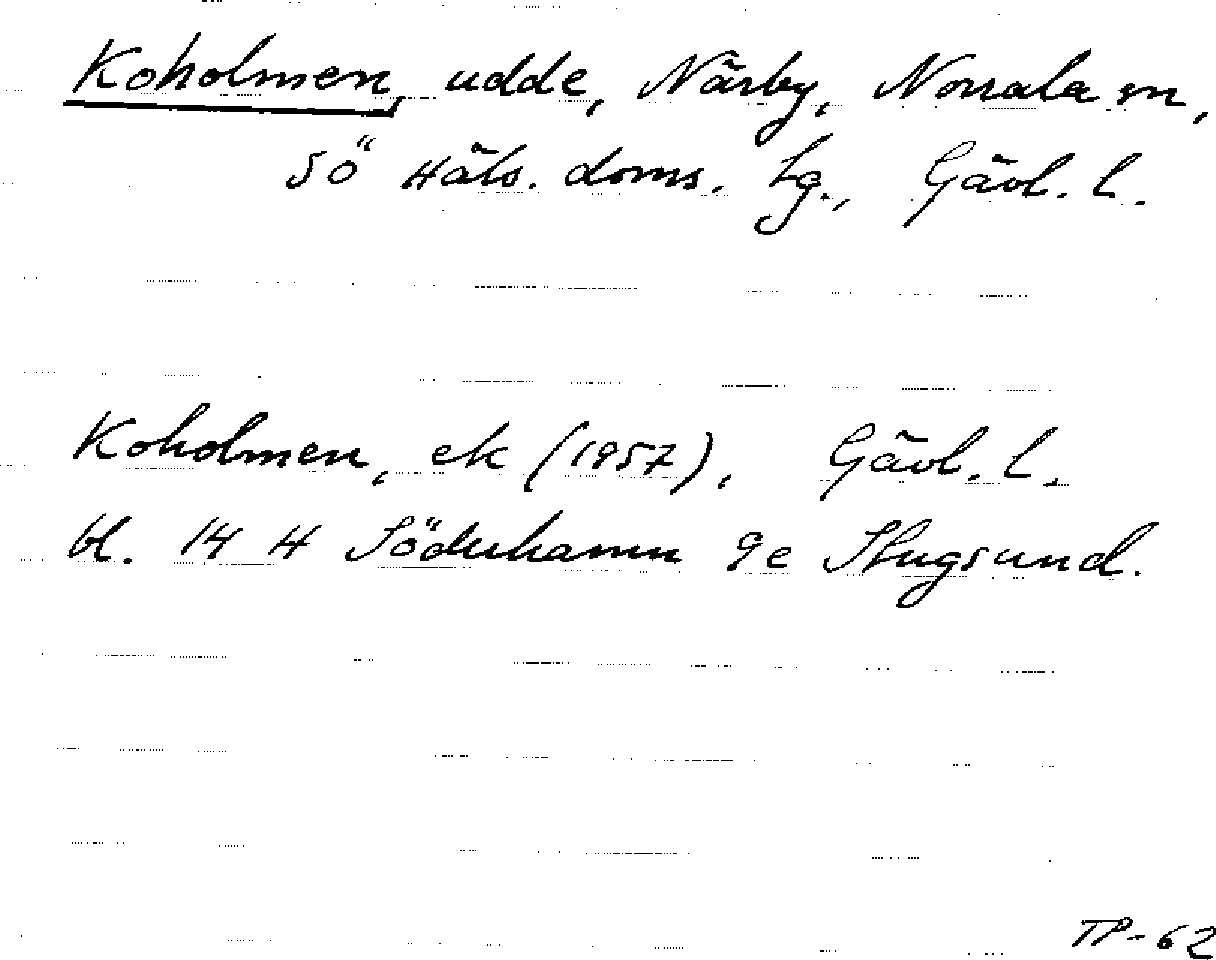 Koholmen, udde, Närby, Norrala sn,
Sö Häls. doms. Lg., Gävl. l.
Koholmen, ek (1957), Gävl. l.
bl. 14 H Söderhamn 9e Stugsund.
TP-62